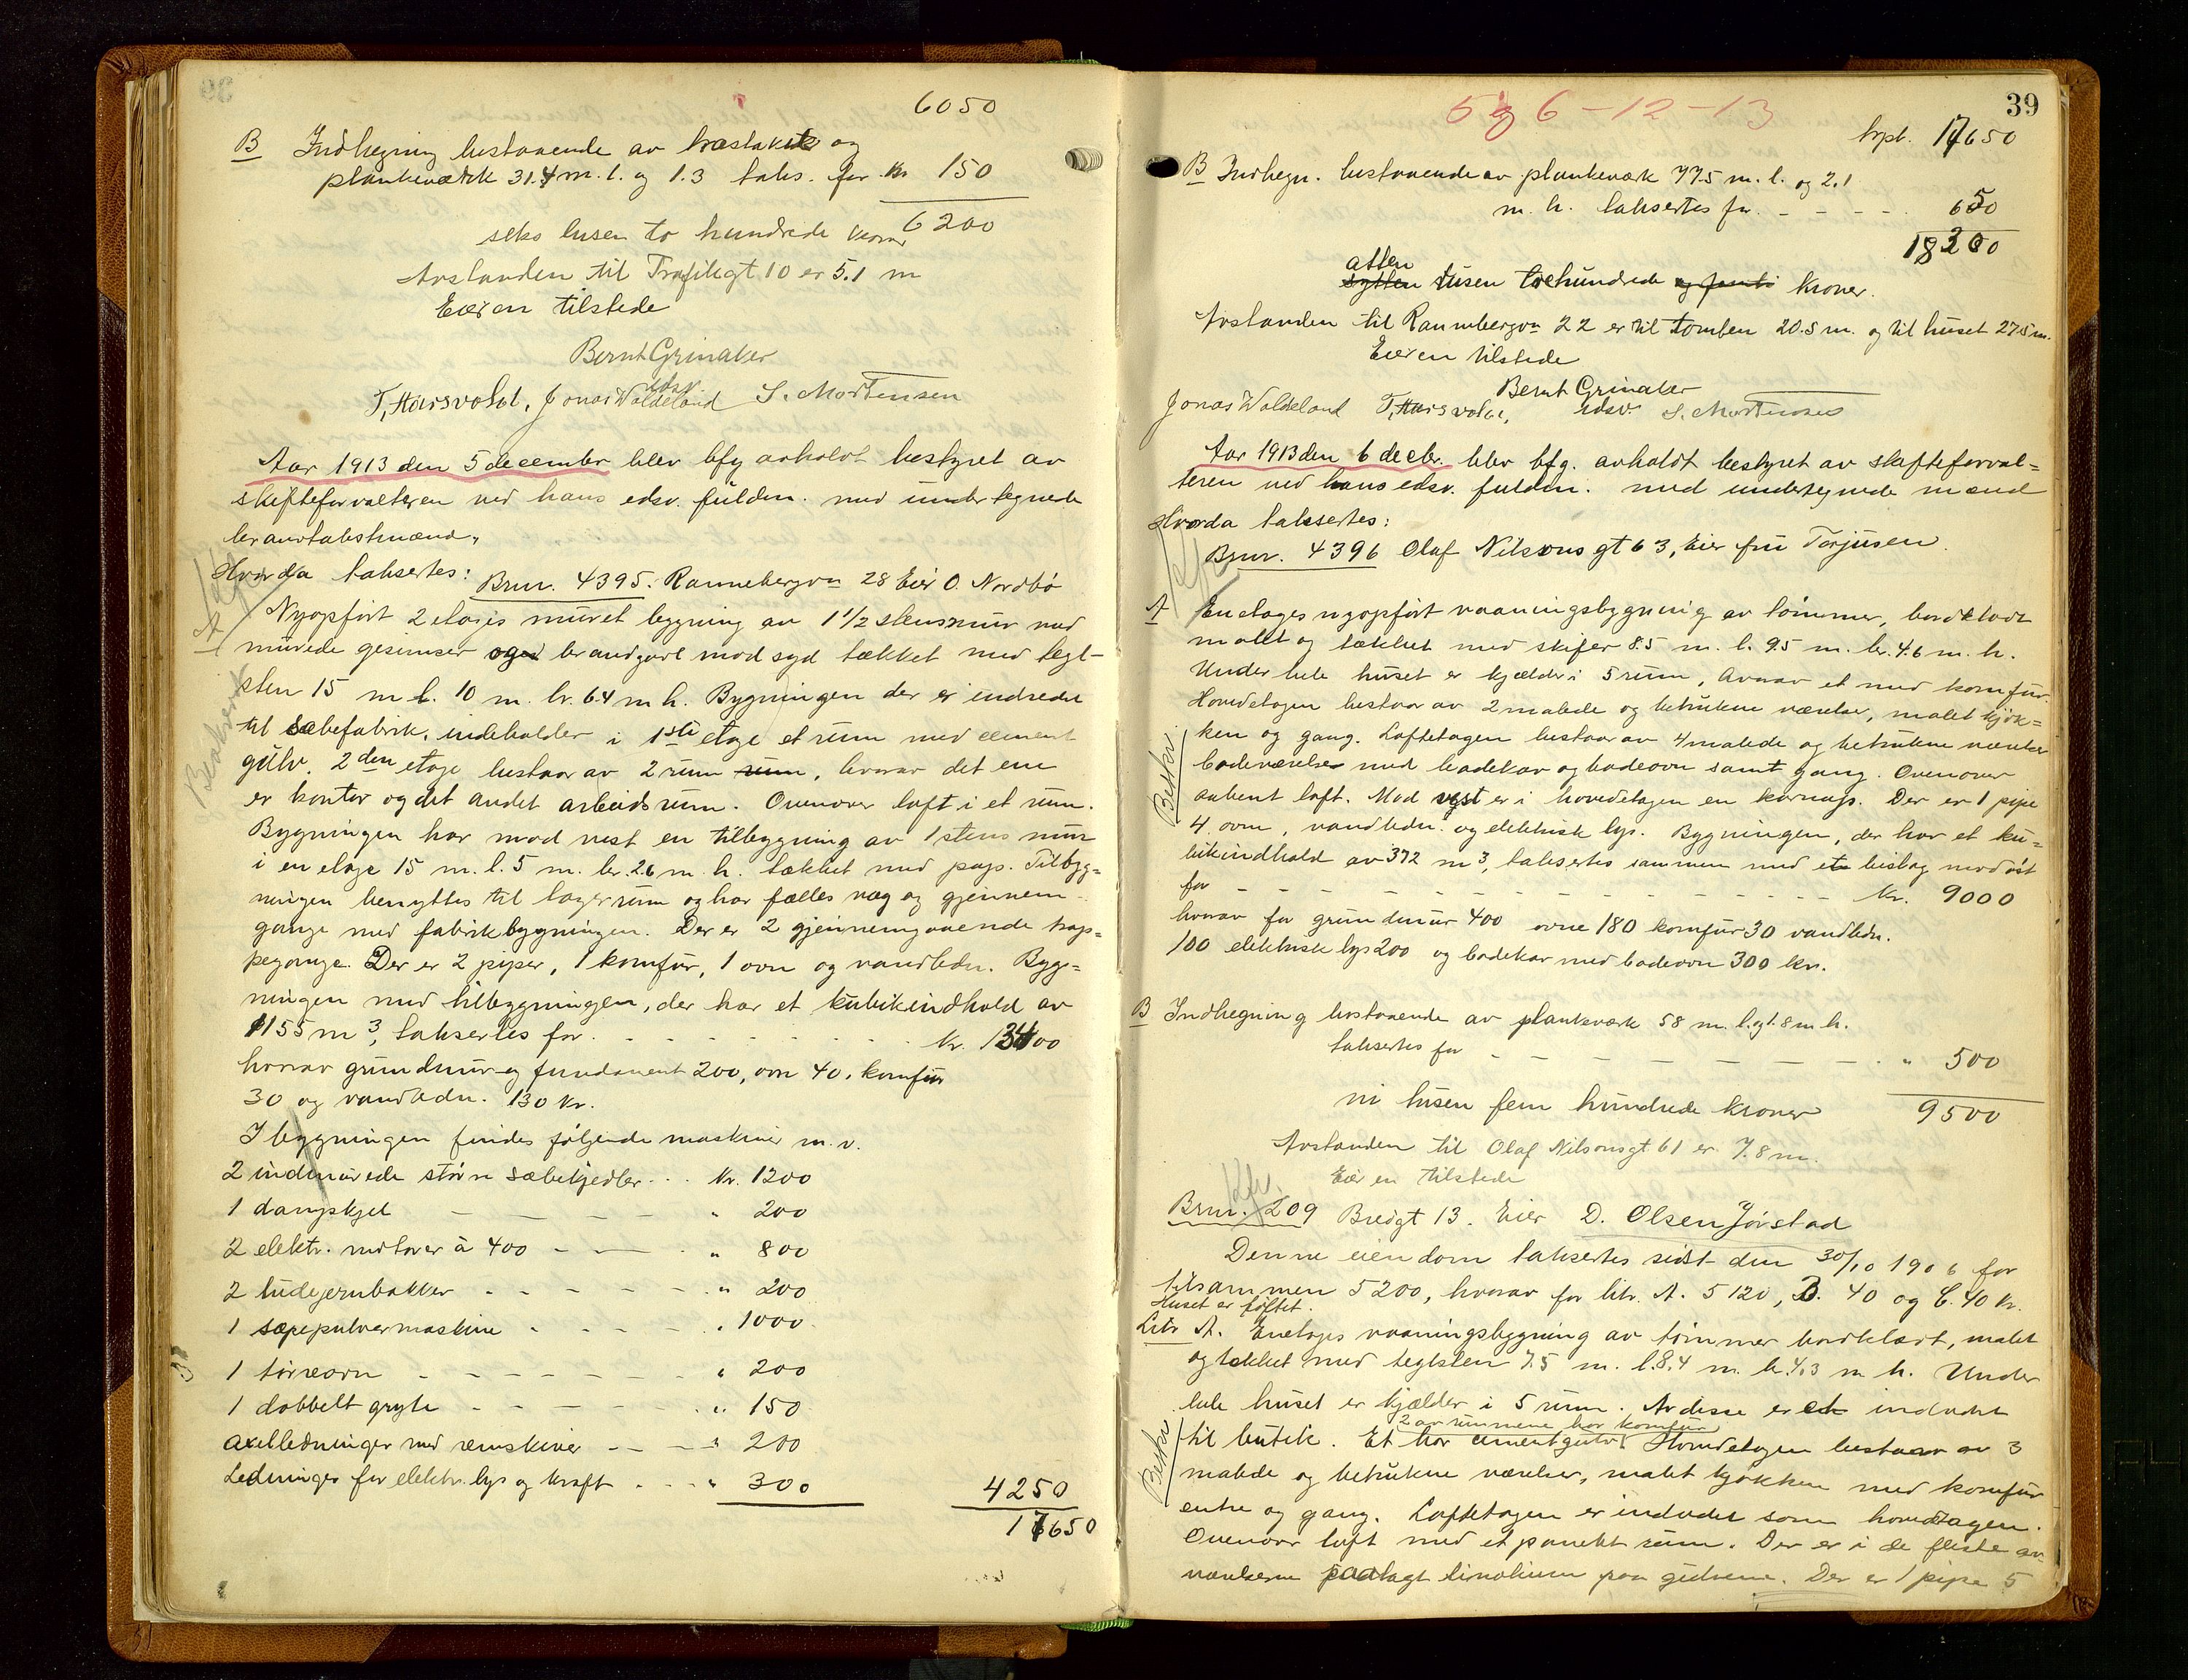 6050
B Indhegning bestaaende av træstakit og
plankeværk 31.4 m. l. og 1.3 taks. for Kr 150
6200
seks tusen to hundrede kroner
Avstanden til Trafilegt 10 er 5.1 m
Eieren tilstede
Bernt Grinaker
edsv.
T. Harsvoldt, Jonas Waldeland S. Mortensen
Aar 1913 den 5 december blev bfg avholdt bestyret av
skifteforvalteren ved hans edsv. fuldm. med undertegnede
brandtakstmænd.
Hvorda taksertes: Brnr. 4395. Rannebergvn 28 Eier O. Nordbö
A Nyopført 2 etages muret bygning av 1 1/2 stensmur med
murede gesimser og brandgavl mod syd tækket med tegl-
sten 15 m l. 10 m. br. 6.4 m h. Bygningen der er indredet
til sæbefabrik, indeholder i 1ste etage et rum med cement
gulv. 2den etage bestaar av 2 rum rum, hvorav det ene
er kontor og det andet arbeidsrum. Ovenover loft i et rum.
Bygningen har mod vest en tilbygning av 1 stens mur
i en etage 15 m. l. 5 m. br. 2.6 m. h. tækket med pap. Tilbyg=
ningen benyttes til lagerrum og har fælles væg og gjennem-
gange med fabrikbygningen. Der er 2 gjennemgaaende trap=
pegange. Der er 2 piper, 1 komfur, 1 ovn og vandledn. Byg=
ningen med tilbygningen, der har et kubikindhold av
1155 m3, taksertes for . - - - - - - - Kr. 13400
hvorav grundmur og fundament 200, ovn 40, komfur
30 og vandledn. 130 Kr.
I bygningen findes følgende maskiner m. v.
2 indmurede større sæbekjedler . . . Kr. 1200
1 dampkjel - - - - " 200
2 elektr. motorer à 400 - - - " 800
2 ludejernbakker - - - - - - " 200
1 sæpepulvermaskine - - - - - " 1000
1 tørreovn - - - - - - - " 200
1 dobbelt gryte - - - - - " 150
axelledninger med remskiver - - - " 200
Ledninger for elektr. lys og kraft - - - " 300 4250
17650
5 og 6 - 12 - 13
39
trpt. 17650
B Indhegn. bestaaende av plankeværk 77.5 m. l. og 2.1
m. h. taksertes for. - - - - . 650
18300
atten
sytten tusen trehundrede og femti kroner.
Avstanden til Rannebergvn 22 er til tomten 20.5 m. og til huset 27.5 m.
Eieren tilstede
Bernt Grinaker
Jonas Waldeland T. Harsvoldt, edsv. S. Mortensen
Aar 1913 den 6 decbr. blev bfg. avholdt bestyret av skifteforval=
teren ved hans edsv. fuldm. med undertegnede mænd
Hvorda taksertes:
Brnr. 4396 Olaf Nilsons gt 63, Eier fru Torjusen.
A Enetages nyopført vaaningsbygning av tømmer, bordklædt
malt og tækket med skifer 8.5 m. l. 9.5 m. br. 4.6 m. h.
Under hele huset er kjælder i 5 rum, hvorav et med komfur.
Hovedetagen bestaar av 2 malede og betrukne værelser, malet kjøk=
ken og gang. Loftetagen bestaar av 4 malede og betrukne værelser
badeværelse med badekar og badeovn samt gang. Ovenover
Beskr.
aabent loft. Mod vest er i hovedetagen en karnap. Der er 1 pipe
4 ovne, vandledn. og elektrisk lys. Bygningen, der har et ku=
bikindhold av 372 m3, taksertes sammen med et bislag mod øst
for - - - - - - - - - - - - - - Kr. 9000
hvorav for grundmur 400 ovne 180 komfur 30 vandledn.
100 elektrisk lys 200 og badekar med badeovn 300 kr.
B Indhegning bestaaende av plankeværk 58 m. l. og 1.8 m h.
taksertes for - - - - - - - - . " 500
ni tusen fem hundrede kroner 9500
Avstanden til Olaf Nilsonsgt 61 er 7.8 m.
Eieren tilstede
Brnr. 209 Bredgt 13. Eier D. Olsen Jørstad
Denne eiendom taksertes sidst den 30/10 1906 for
tilsammen 5200, hvorav for litr. A. 5120, B. 40 og C. 40 Kr.
Huset er løftet.
Litr A. Enetages vaaningsbygning av tømmer bordklædt, malet
og tækket med teglsten 7.5 m. l. 8.4 m. br. 4.3 m h. Under
hele huset er kjælder i 5 rum. Av disse er et indredet
2 av rummene har komfur
til butik. Et har cementgulv. Hovedetagen bestaar av 3
Beskr
malede og betrukne værelser, malet kjøkken med komfur
entre og gang. Loftetagen er indredet som hovedetagen.
Ovenover loft med et panelt rum. Der er i de fleste av
værelserne paalagt linolium paa gulvene. Der er 1 pipe 5